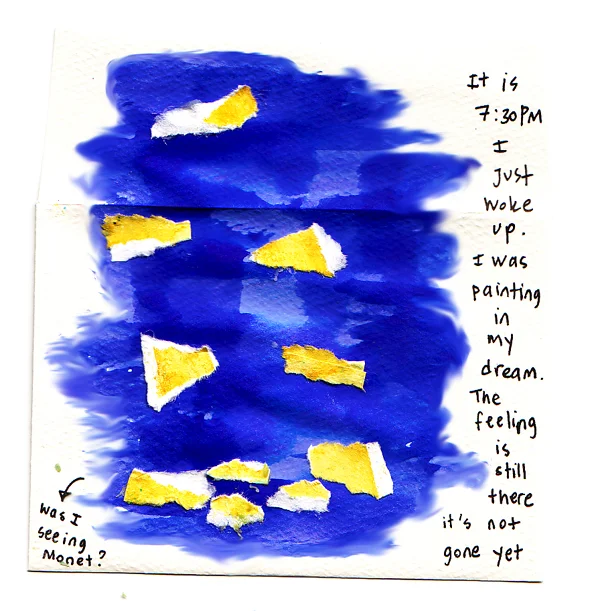 It is
7:30PM
I
just
woke
up.
I was
painting
in
my
dream.
The
feeling
is
still
there
it's not
gone yet
was I
seeing
Monet?